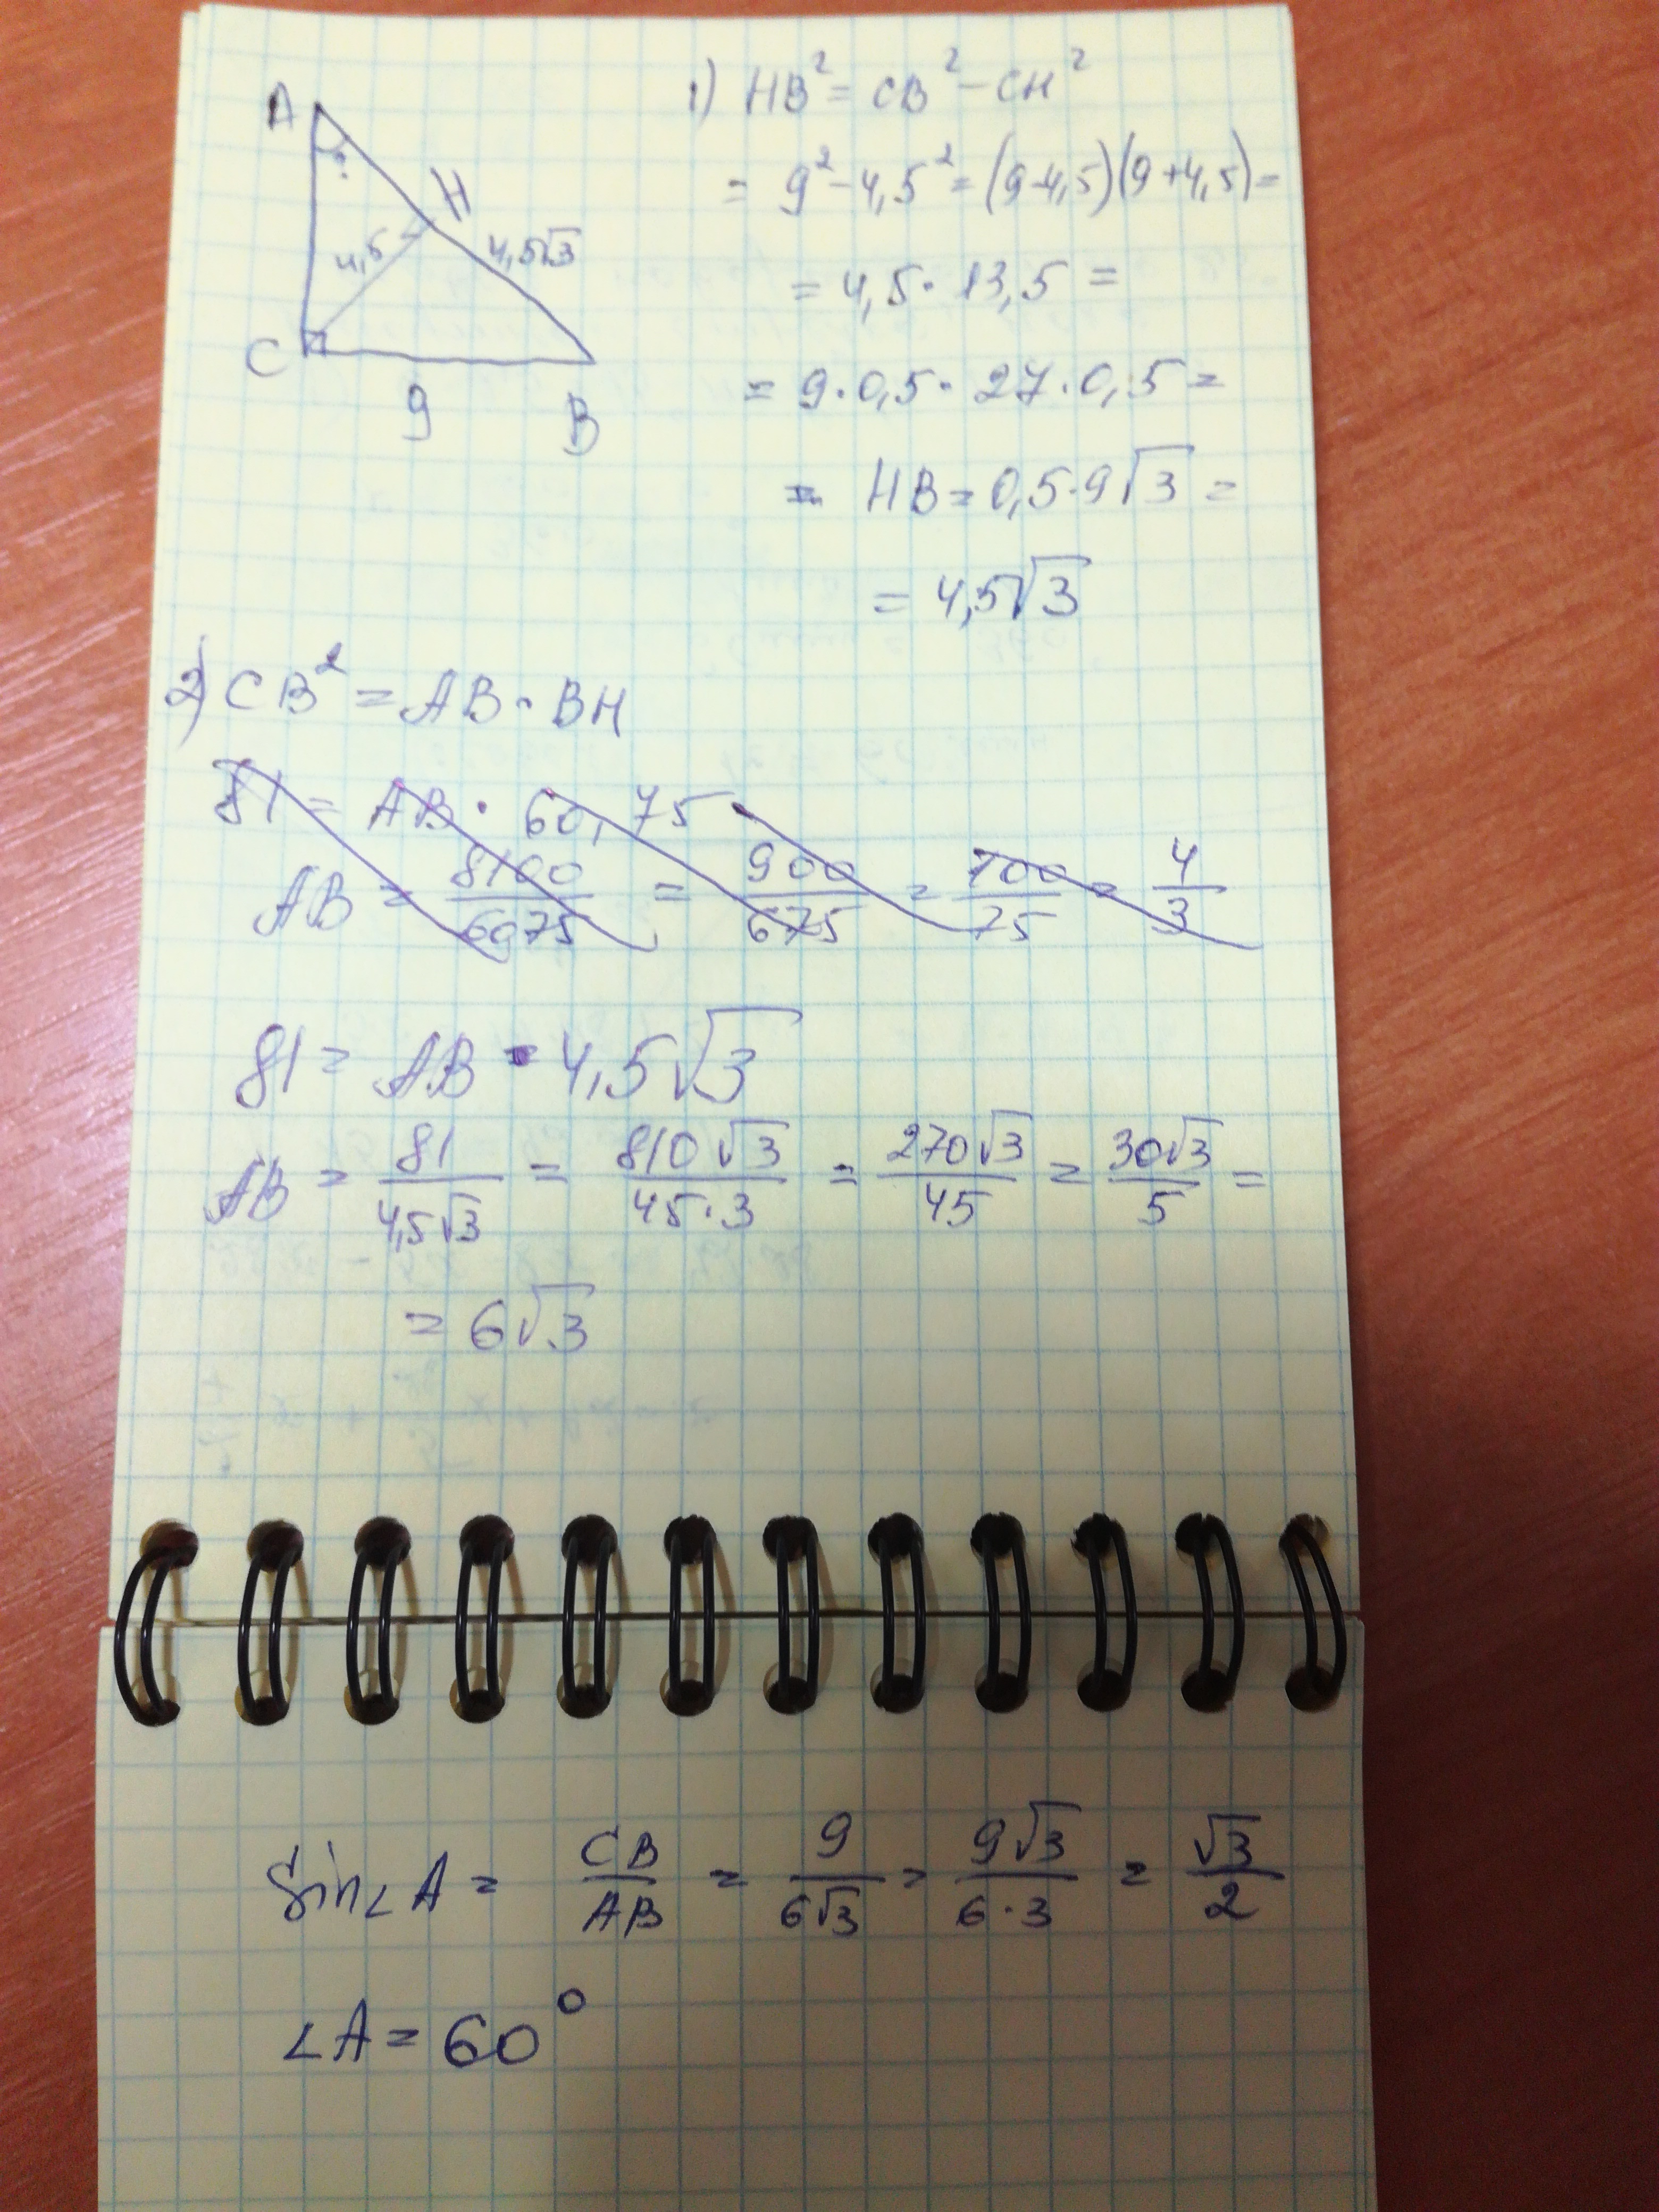 A
?
H
4,5
4,5√3
C
9
B
1) HB² = CB² - CH²
= 9² - 4,5² = (9-4,5)(9+4,5) =
= 4,5 · 13,5 =
= 9 · 0,5 · 27 · 0,5 =
= HB = 0,5 · 9√3 =
= 4,5√3
2) CB² = AB · BH
81 = AB · 60,75
AB = 8100/6075 = 900/675 = 100/75 = 4/3
81 = AB · 4,5√3
AB = 81/4,5√3 = 810√3/45·3 = 270√3/45 = 30√3/5 =
= 6√3
Sin∠A = CB/AB = 9/6√3 = 9√3/6·3 = √3/2
∠A = 60°